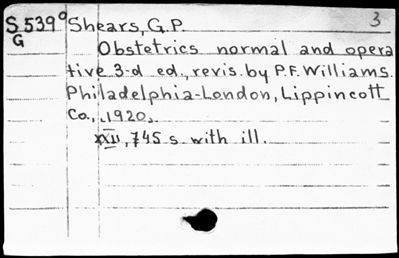 S 539° Shears, G.P. 3
G
Obstetrics normal and opera
tive 3-d ed., revis. by P.F. Williams.
Philadelphia-London, Lippincott
Co., 1920.
XXII, 745 s. with ill.